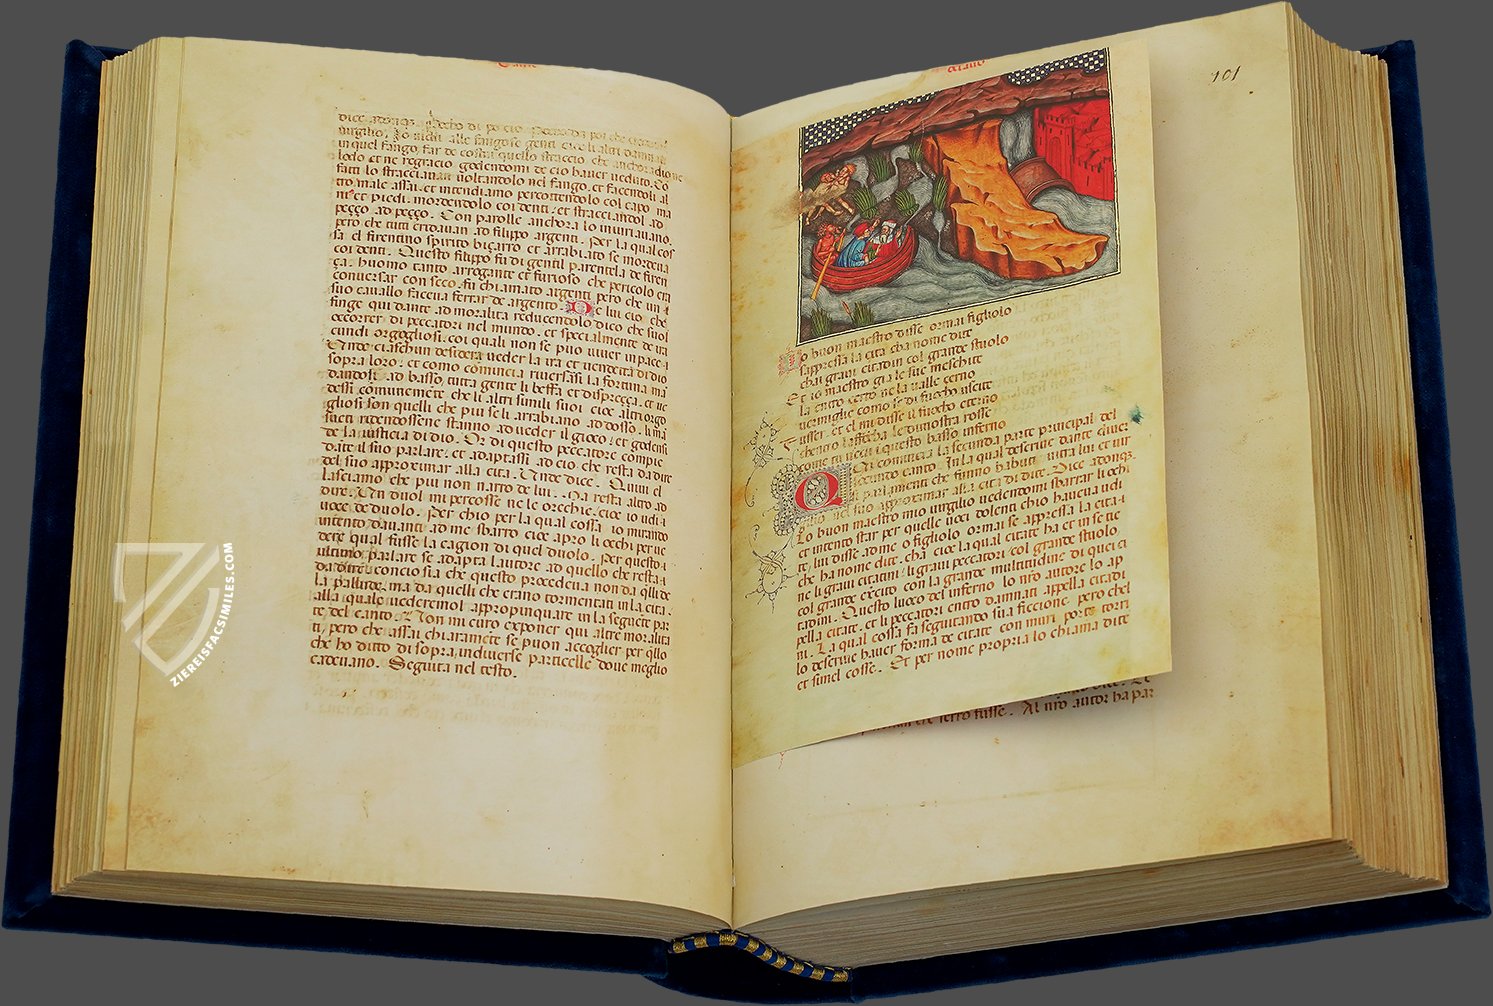 dice adonq;
virgilio. Io vidi alle fangose genti cioe li altri damnati
in quel fango, far de costui quello straccio che anchora dio ne
lodo et ne regracio godendomi de cio haver veduto. Co
fati lo stracciavan voltandolo nel fango. et facendoli al
tro male assai. et intendiamo percottendolo col capo. ma
ni et piedi. mordendolo coi denti. et stracciandol ad
peçço ad peçço. Con parolle anchora lo iniuriavano.
pero che tutti cridavan ad filippo argenti. Per la qual cos
sa el firentino spirito biçarro et arrabiato se mordeva
coi denti. Questo filippo fu di gentil parentela de firen
ça. huomo tanto arrogante et furioso che pericolo era
conversar con seco. fu chiamato argenti pero che un
suo cavallo faceva ferrar de argento. De lui cio che
finge qui dante ad moralita reducendolo dico che suol
occorrer di peccatori nel mundo. et specialmente de ira
cundi orgogliosi. coi quali non se puo viver in pace
Unde ciaschun desidera veder la ira et vendetta di dio
sopra loro. et como comincia riversarsi la fortuna ma
dandosi ad basso, tutta gente li beffa et dispreçça. et ve
dessi comunemente che li altri simili suoi cioe altri orgo
gliosi son quelli che piu se li arrabiano adosso. li ma
facti ridendossene stanno ad veder il gioco. et godensi
de la iusticia di dio. Or di questo peccatore compie
dante il suo parlare. et adaptassi ad cio che resta da dire
del suo approximar alla cita. Unde dice. Quivi el
lasciamo che piu non narro de lui. Ma resta altro ad
dire. Un duol mi percosse ne le orechie. cioe io udi
voce de duolo. per chio per la qual cossa io mirando
intento davanti ad me sbarro cioe apro li ochi per ve
dere qual fusse la cagion di quel duolo. Per questo
ultimo parlare se adapta lautore ad quello che resta
da dire. conciosia che questo procedeva non da quilli de
la pallude. ma da quelli che erano tormentati in la cita.
alla quale vederemol appropinquare in la seguente par
te del canto. Et non mi curo exponer qui altre moralita
ti, pero che assai chiaramente se puon accoglier per quello
che ho ditto di sopra, in diverse particelle dove meglio
cadevano. Seguita nel testo.
101
Lo buon maestro disse ormai figliolo
sappressa la cita cha nome dite
chai gravi citadin col grande stuolo
Et io maestro gia le sue meschite
la entro certo ne la valle cerno
vermiglie como se di fuocho uscite
fusser. et el mi disse il fuocho eterno
chentro laffocha le dimostra rosse
come tu vedi i questo basso inferno
Qui comincia la secunda parte principal del
secundo canto. In la qual descrive dante diver
si parlamenti che funno habuti intra lui et vir
gilio nel suo approximar alla cita di dite. Dice adonq;
Lo buon maestro mio virgilio vedendomi sbarrar li ochi
et intento star per quelle voci dolenti chio haveva udi
te, lui disse ad me o figliolo ormai se appressa la cita
che ha nome dite. cha cioe la qual citate ha et in se tie
ne li gravi citatini li gravi peccatori col grande stuolo
col grande exercito con la grande multitudine di quei ci
tadini. Questo luoco del inferno lo nro autore lo ap
pella citate. et li peccatori entro damnati appella citadi
ni. La qual cossa fa seguitando sua ficcione. pero chel
lo descrive haver forma de citate con muri porte torri
et simel cosse. Et per nome propria lo chiama dite
ferro fusse. Al nro autor ha par
ZIEREISFACSIMILES.COM